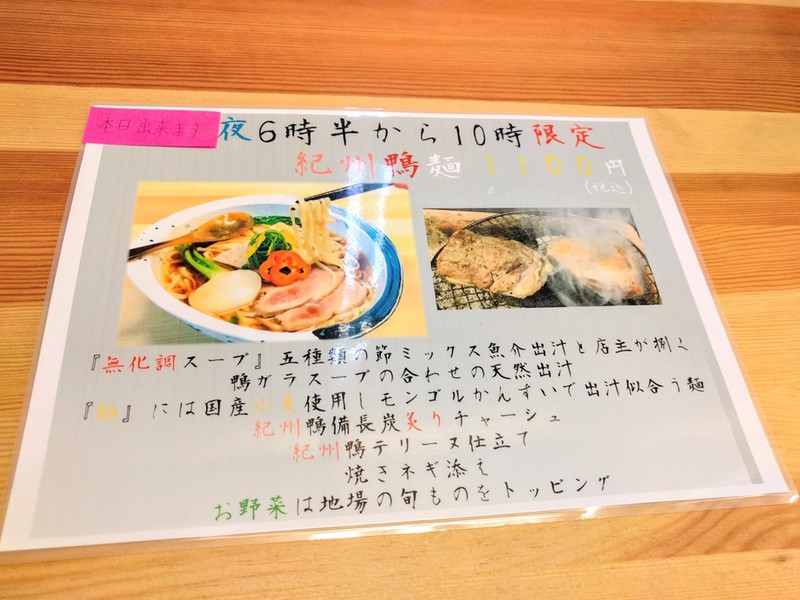 本日出来ます
夜6時半から10時限定
紀州鴨麺1100円
(税込)
『無化調スープ』五種類の節ミックス魚介出汁と店主が捌く
鴨ガラスープの合わせの天然出汁
『麺』には国産小麦使用しモンゴルかんすいで出汁似合う麺
紀州鴨備長炭炙りチャーシュ
紀州鴨テリーヌ仕立て
焼きネギ添え
お野菜は地場の旬ものをトッピング